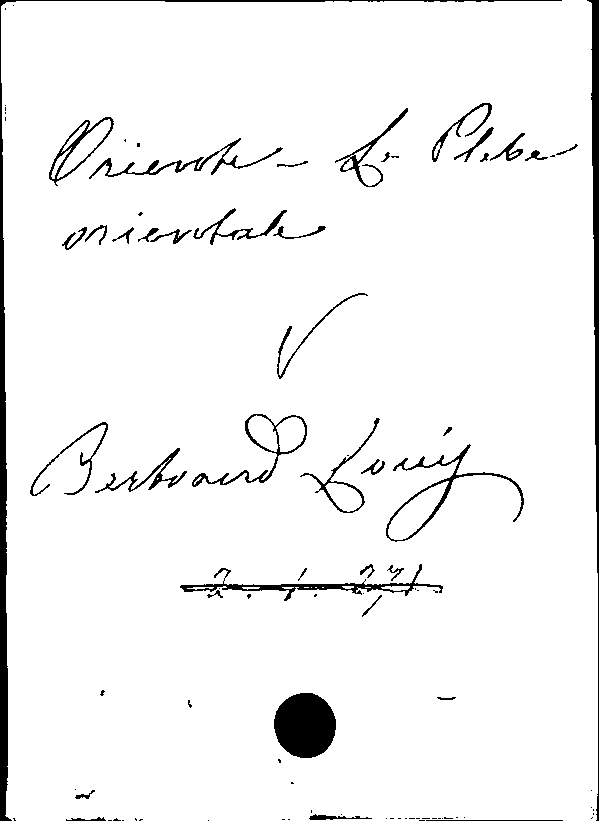 Oriente - Le Plebe
orientale
V
Bertrand Louis
2. 1. 271